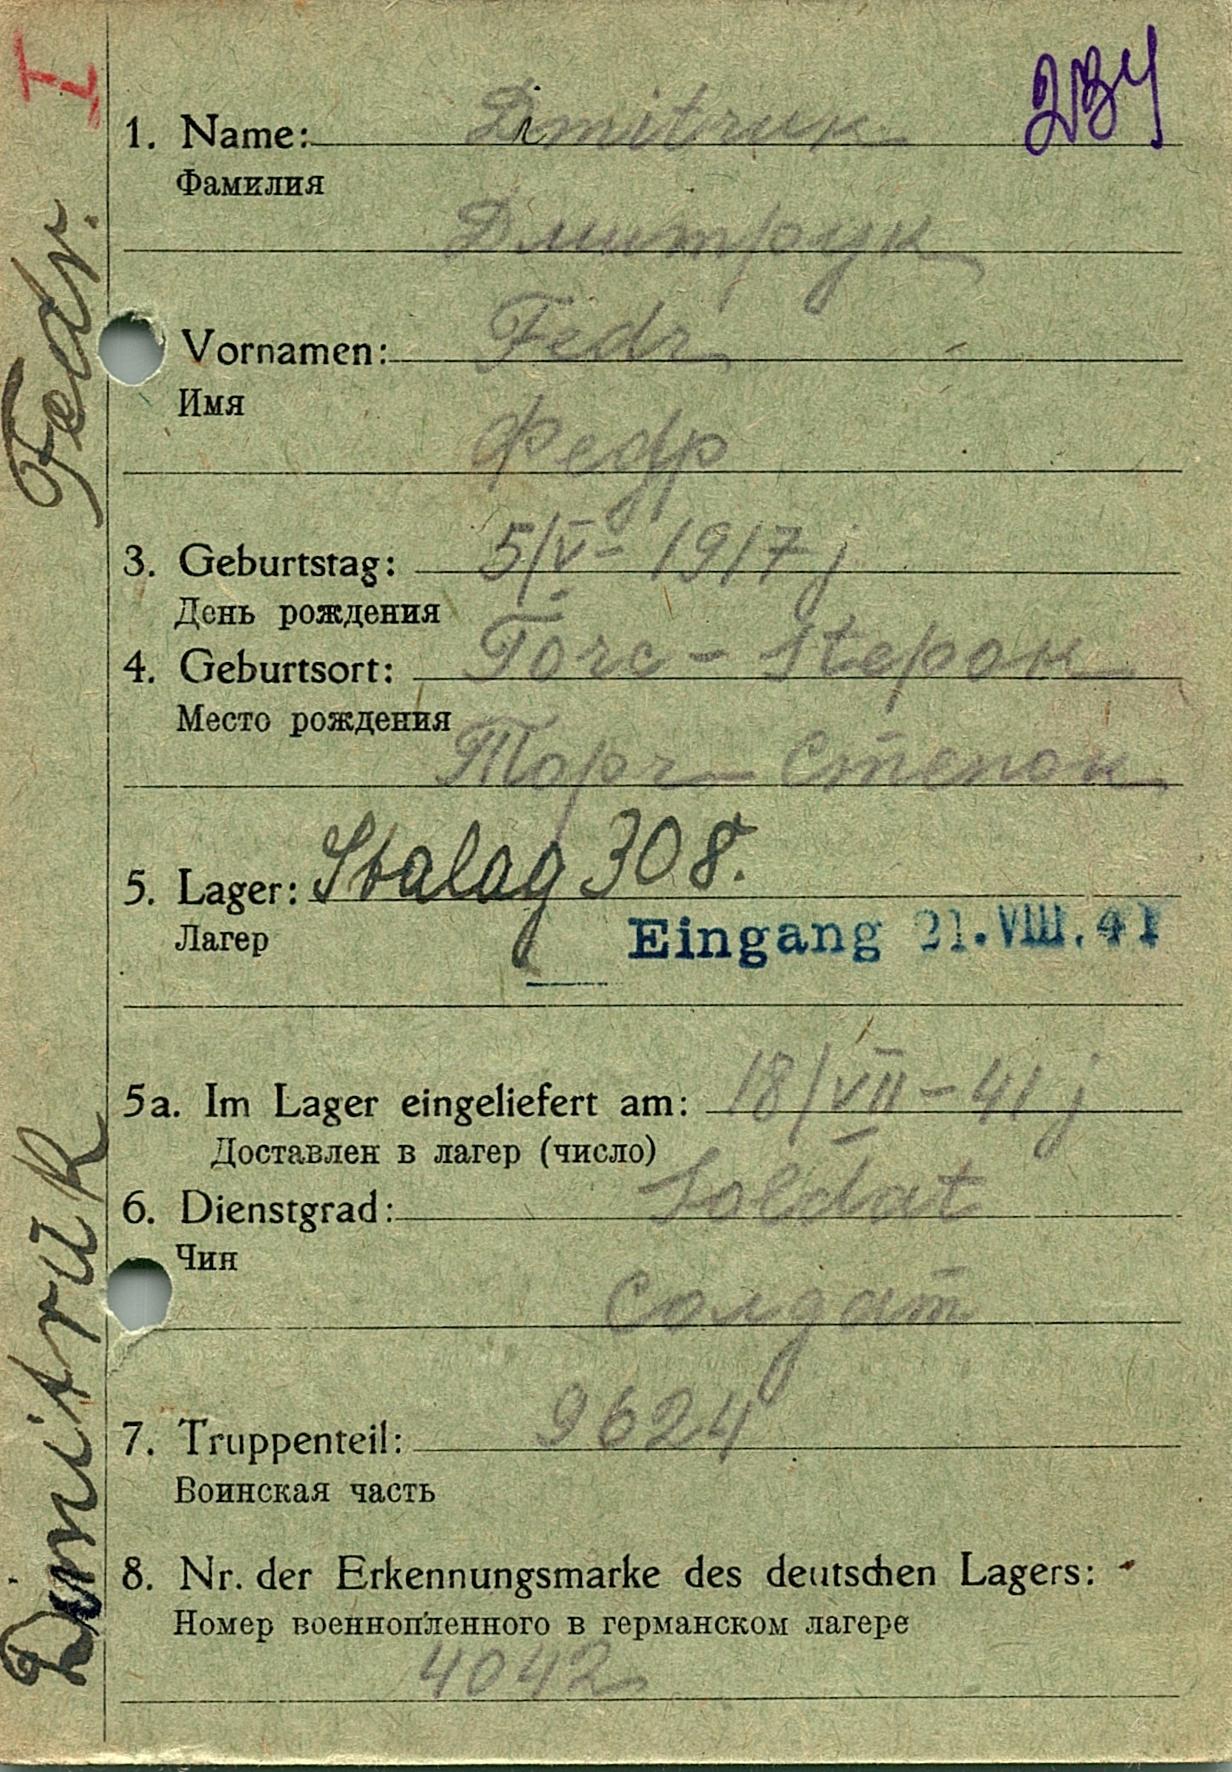 I
234
1. Name: Dimitruk
Фамилия
Дмитрук
Vornamen: Fedr
Имя
Федр
3. Geburtstag: 5/V - 1917 j
День рождения
4. Geburtsort: Torc - Stepok
Место рождения
Торг - Степок
5. Lager: Stalag 308.
Лагер
Eingang 21. VIII. 41
5a. Im Lager eingeliefert am: 18/VII - 41 j
Доставлен в лагер (число)
6. Dienstgrad: Soldat
Чин
Солдат
7. Truppenteil: 9624
Воинская часть
8. Nr. der Erkennungsmarke des deutschen Lagers:
Номер военнопленного в германском лагере
4042
Dimitruk Fedr.